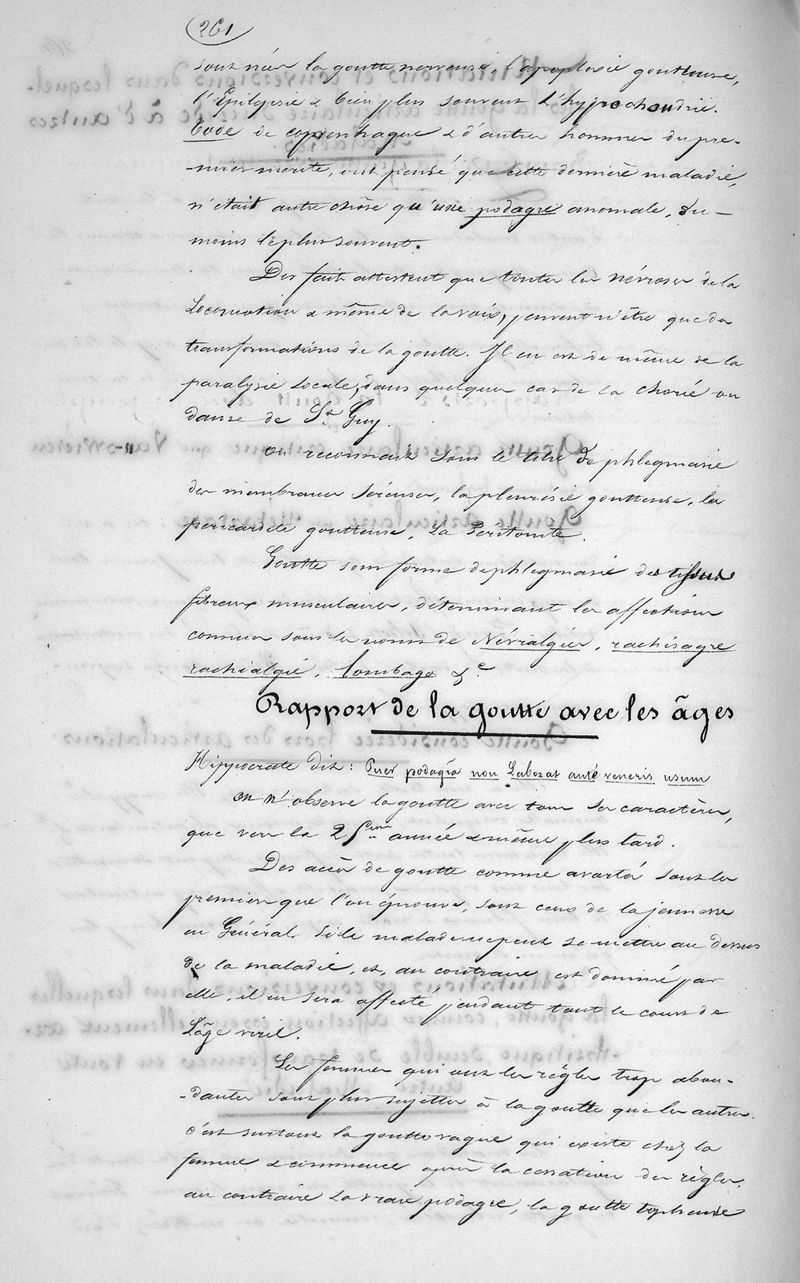 261
sont nées la goutte nerveuse, l'apoplexie goutteuse,
l'Epilepsie & bien plus souvent L'hypochondrie.
Tode de copenhague & d'autres hommes du pre-
-mier mérite, ont pensé que cette dernière maladie,
n'était autre chose qu'une podagre anomale, du-
moins le plus souvent.
Des faits attestent que toutes les névroses de la
Locomotion & même de la voix, peuvent n'être que des
transformations de la goutte. Il en est de même de la
paralysie Locale, dans quelques cas de la chorée ou
danse de St Guy.
on reconnait sous le titre de phlegmasie
des membranes séreuses, la pleurésie goutteuse, la
péricardite goutteuse, La Peritonite.
Goutte sous forme de phlegmasie des tissus
fibreux musculaires, déterminant les affections
connues sous les noms de Névralgies, rachisagre
rachialgie, Lombago &c
Rapport de la goutte avec les âges
Hippocrate dit: Puer podagra non Laborat ante veneris usum
on n'observe la goutte avec tous ses caractères,
que vers la 25eme année & même plus tard.
Des accès de goutte comme avortés sont les
premiers que l'on éprouve, sont ceux de la jeunesse
en Général. Si le malade ne peut se mettre au dessus
de la maladie, et, au contraire est dominé par
elle, il en sera affecté pendant tout le cours de
L'âge viril.
Les femmes qui ont les règles trop abon-
-dantes sont plus sujettes à la goutte que les autres.
c'est surtout la goutte vague qui existe chez la
femme & commence après la cessation des règles.
au contraire la vraie podagre, la goutte topheuse